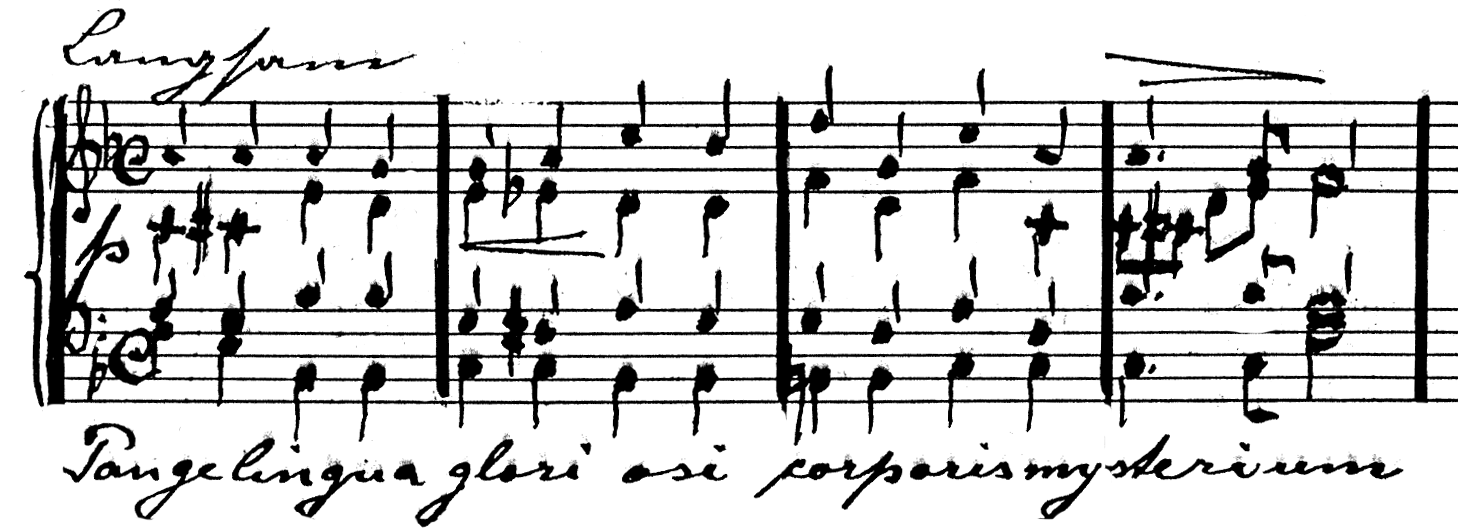 Langsam
p
Tange lingua glori osi corporis mysterium